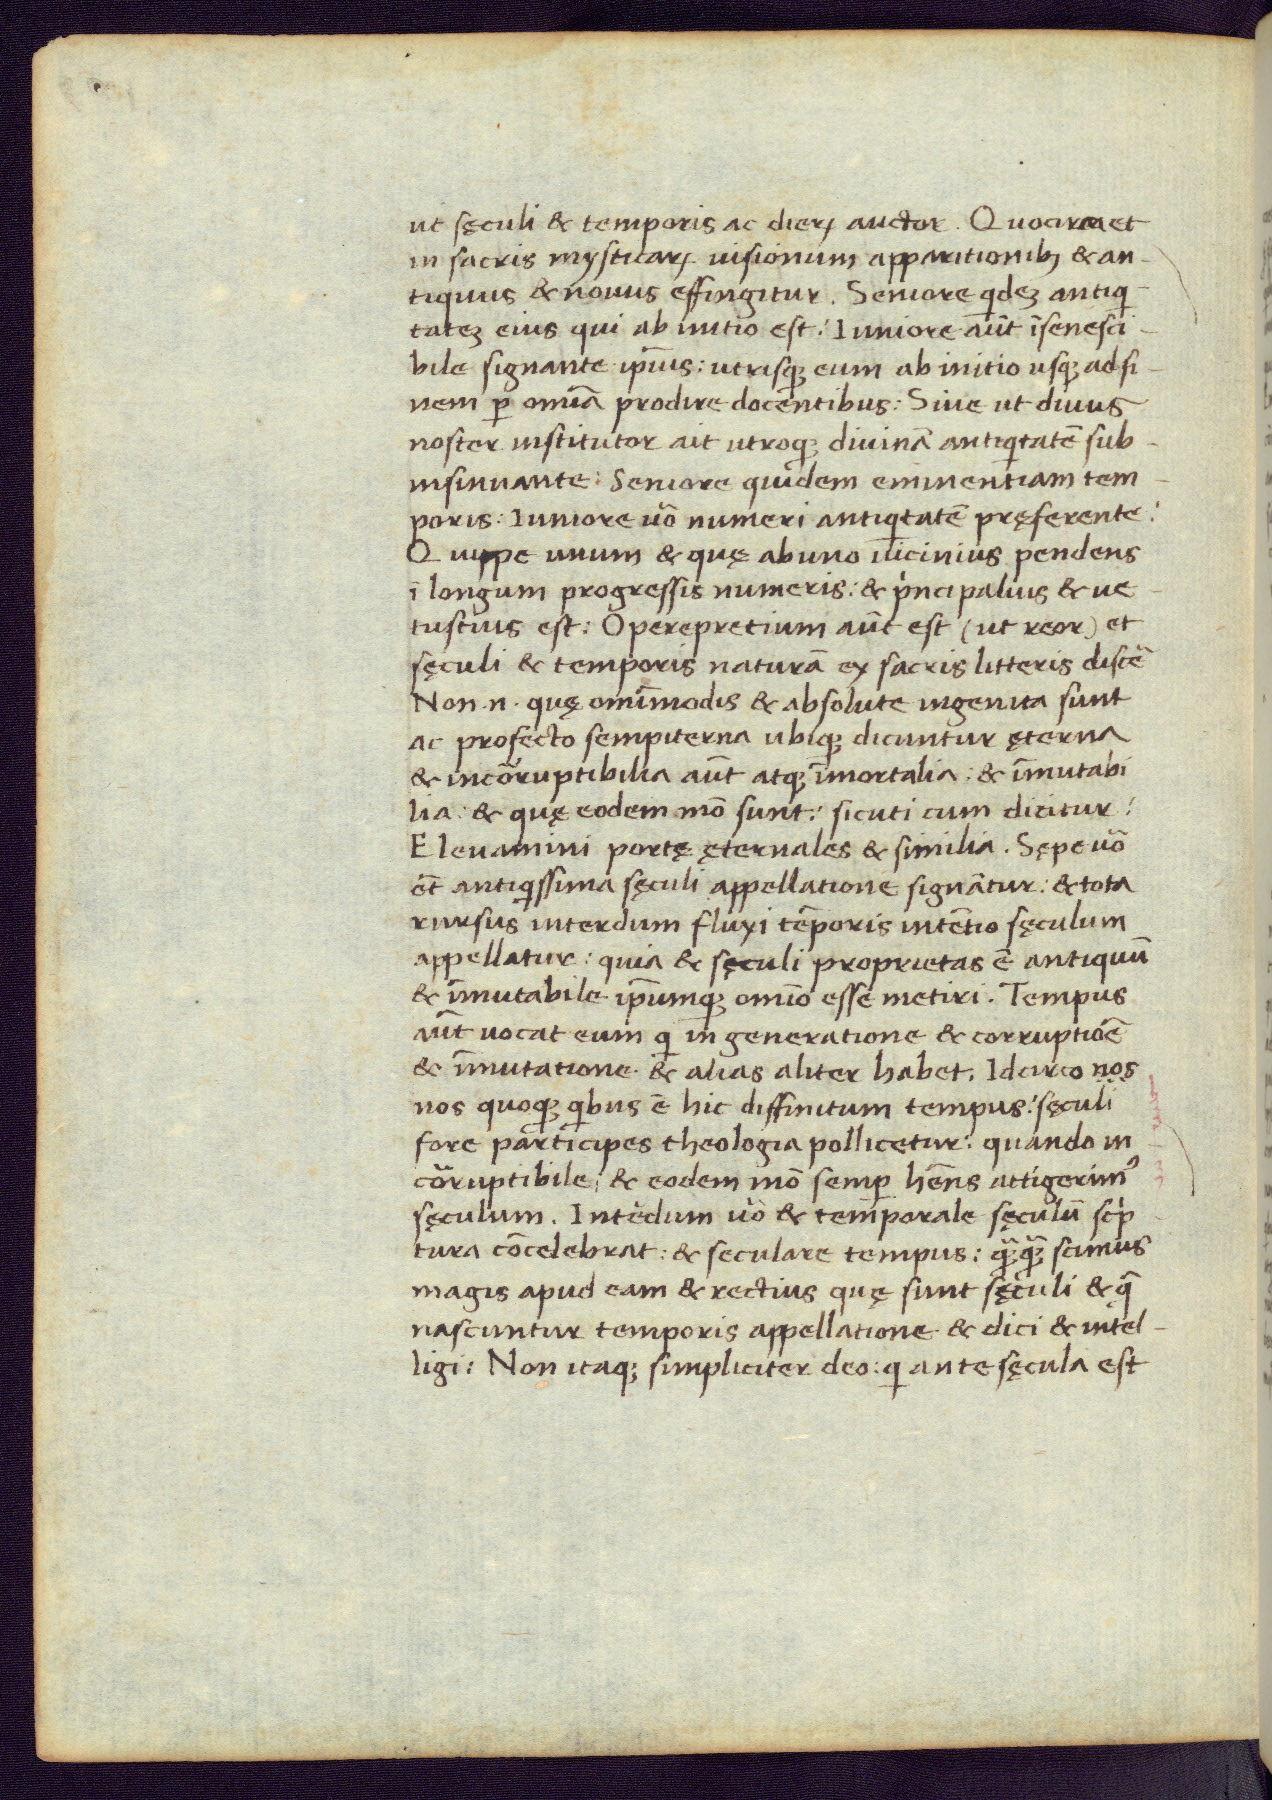 ut sęculi & temporis ac dierꝝ auctor. Quocirca et
in sacris mysticarꝝ uisionum apparitionibꝫ & an-
tiquus & nouus effingitur. Seniore qdeꝫ antiq-
tateꝫ eius qui ab initio est: Iuniore aūt īsenesci-
bile signante ip̄ius: utrisqꝫ eum ab initio usqꝫ ad fi-
nem ꝑ omīa prodire docentibus: Siue ut diuus
noster institutor ait utroqꝫ diuinā antiqtatē sub-
insinuante: Seniore quidem eminentiam tem-
poris: Iuniore uō numeri antiqtatē pręferente:
Quippe unum & quę ab uno uicinius pendens
ī longum progressis numeris: & pncipalius & ue-
tustius est: Operepretium aūt est (ut reor) et
sęculi & temporis naturā ex sacris litteris discē
Non .n. quę omīmodis & absolute ingenita sunt
ac profecto sempiterna ubiqꝫ dicuntur ęterna
& incōruptibilia aūt atqꝫ īmortalia: & īmutabi
lia: & quę eodem mō sunt: sicuti cum dicitur:
Eleuamini portę ęternales & similia. Sępe uō
ēt antiqssima sęculi appellatione signātur: & tota
rursus interdum fluxi tēporis intētio sęculum
appellatur: quia & sęculi proprietas ē antiquū
& īmutabile ip̄umqꝫ omīo esse metiri. Tempus
aūt uocat eum q in generatione & corruptiōē
& īmutatione & alias aliter habet. Idcirco nos
nos quoqꝫ qbus ē hic diffinitum tempus: sęculi
fore participes theologia pollicetur: quando in
cōruptibile: & eodem mō semꝑ hēns attigerimꝰ
sęculum. Intēdum uō & temporale sęculū scp-
tura cōcelebrat: & seculare tempus: qꝫqꝫ scimus
magis apud eam & rectius quę sunt sęculi & q̄
nascuntur temporis appellatione & dici & intel-
ligi: Non itaqꝫ simpliciter deo: q ante sęcula est